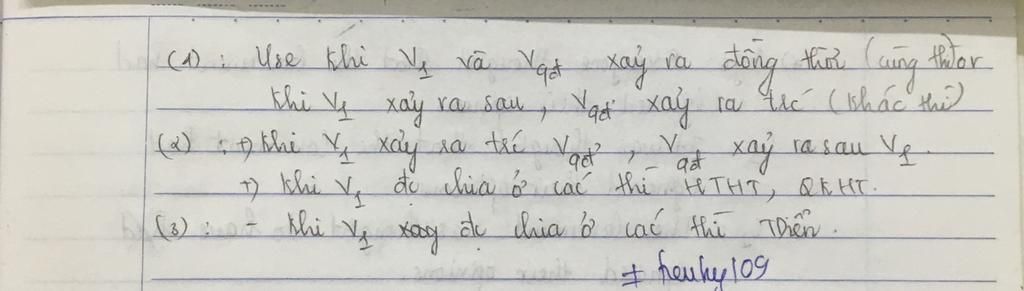 (1) : Use khi V1 và Vqđ xảy ra đồng thời (cùng thì) or
khi V1 xảy ra sau, Vqđ xảy ra trc (khác thì)
(2) : +) khi V1 xảy ra trc Vqđ, Vqđ xảy ra sau V1.
+) khi V1 đc chia ở các thì HTHT, QKHT.
(3) : - khi V1 đc chia ở các thì TDiễn.